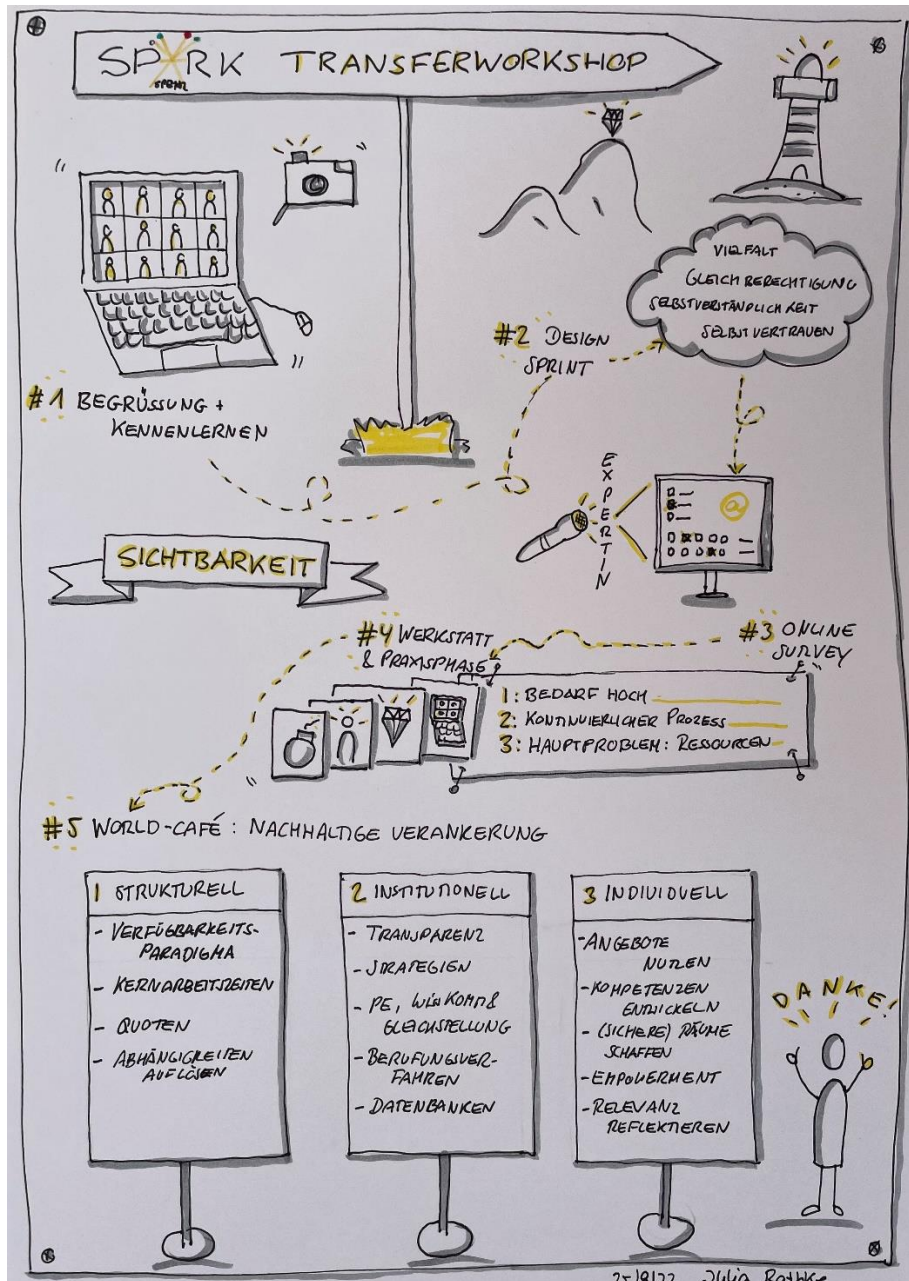 SPARK TRANSFERWORKSHOP
#1 BEGRÜSSUNG +
KENNENLERNEN
#2 DESIGN
SPRINT
VIELFALT
GLEICHBERECHTIGUNG
SELBSTVERSTÄNDLICHKEIT
SELBSTVERTRAUEN
EXPERTIN
@
SICHTBARKEIT
#3 ONLINE
SURVEY
1: BEDARF HOCH
2: KONTINUIERLICHER PROZESS
3: HAUPTPROBLEM: RESSOURCEN
#4 WERKSTATT
& PRAXISPHASE
#5 WORLD-CAFÉ: NACHHALTIGE VERANKERUNG
1 STRUKTURELL
- VERFÜGBARKEITS-
PARADIGMA
- KERNARBEITSZEITEN
- QUOTEN
- ABHÄNGIGKEITEN
AUFLÖSEN
2 INSTITUTIONELL
- TRANSPARENZ
- STRATEGIEN
- PE, WISSKOMM &
GLEICHSTELLUNG
- BERUFUNGSVER-
FAHREN
- DATENBANKEN
3 INDIVIDUELL
- ANGEBOTE
NUTZEN
- KOMPETENZEN
ENTWICKELN
- (SICHERE) RÄUME
SCHAFFEN
- EMPOWERMENT
- RELEVANZ
REFLEKTIEREN
DANKE!
Julia